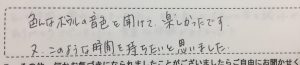 色んなボウルの音色を聞けて、楽しかったです。
又、このような時間を持ちたいと思いました。